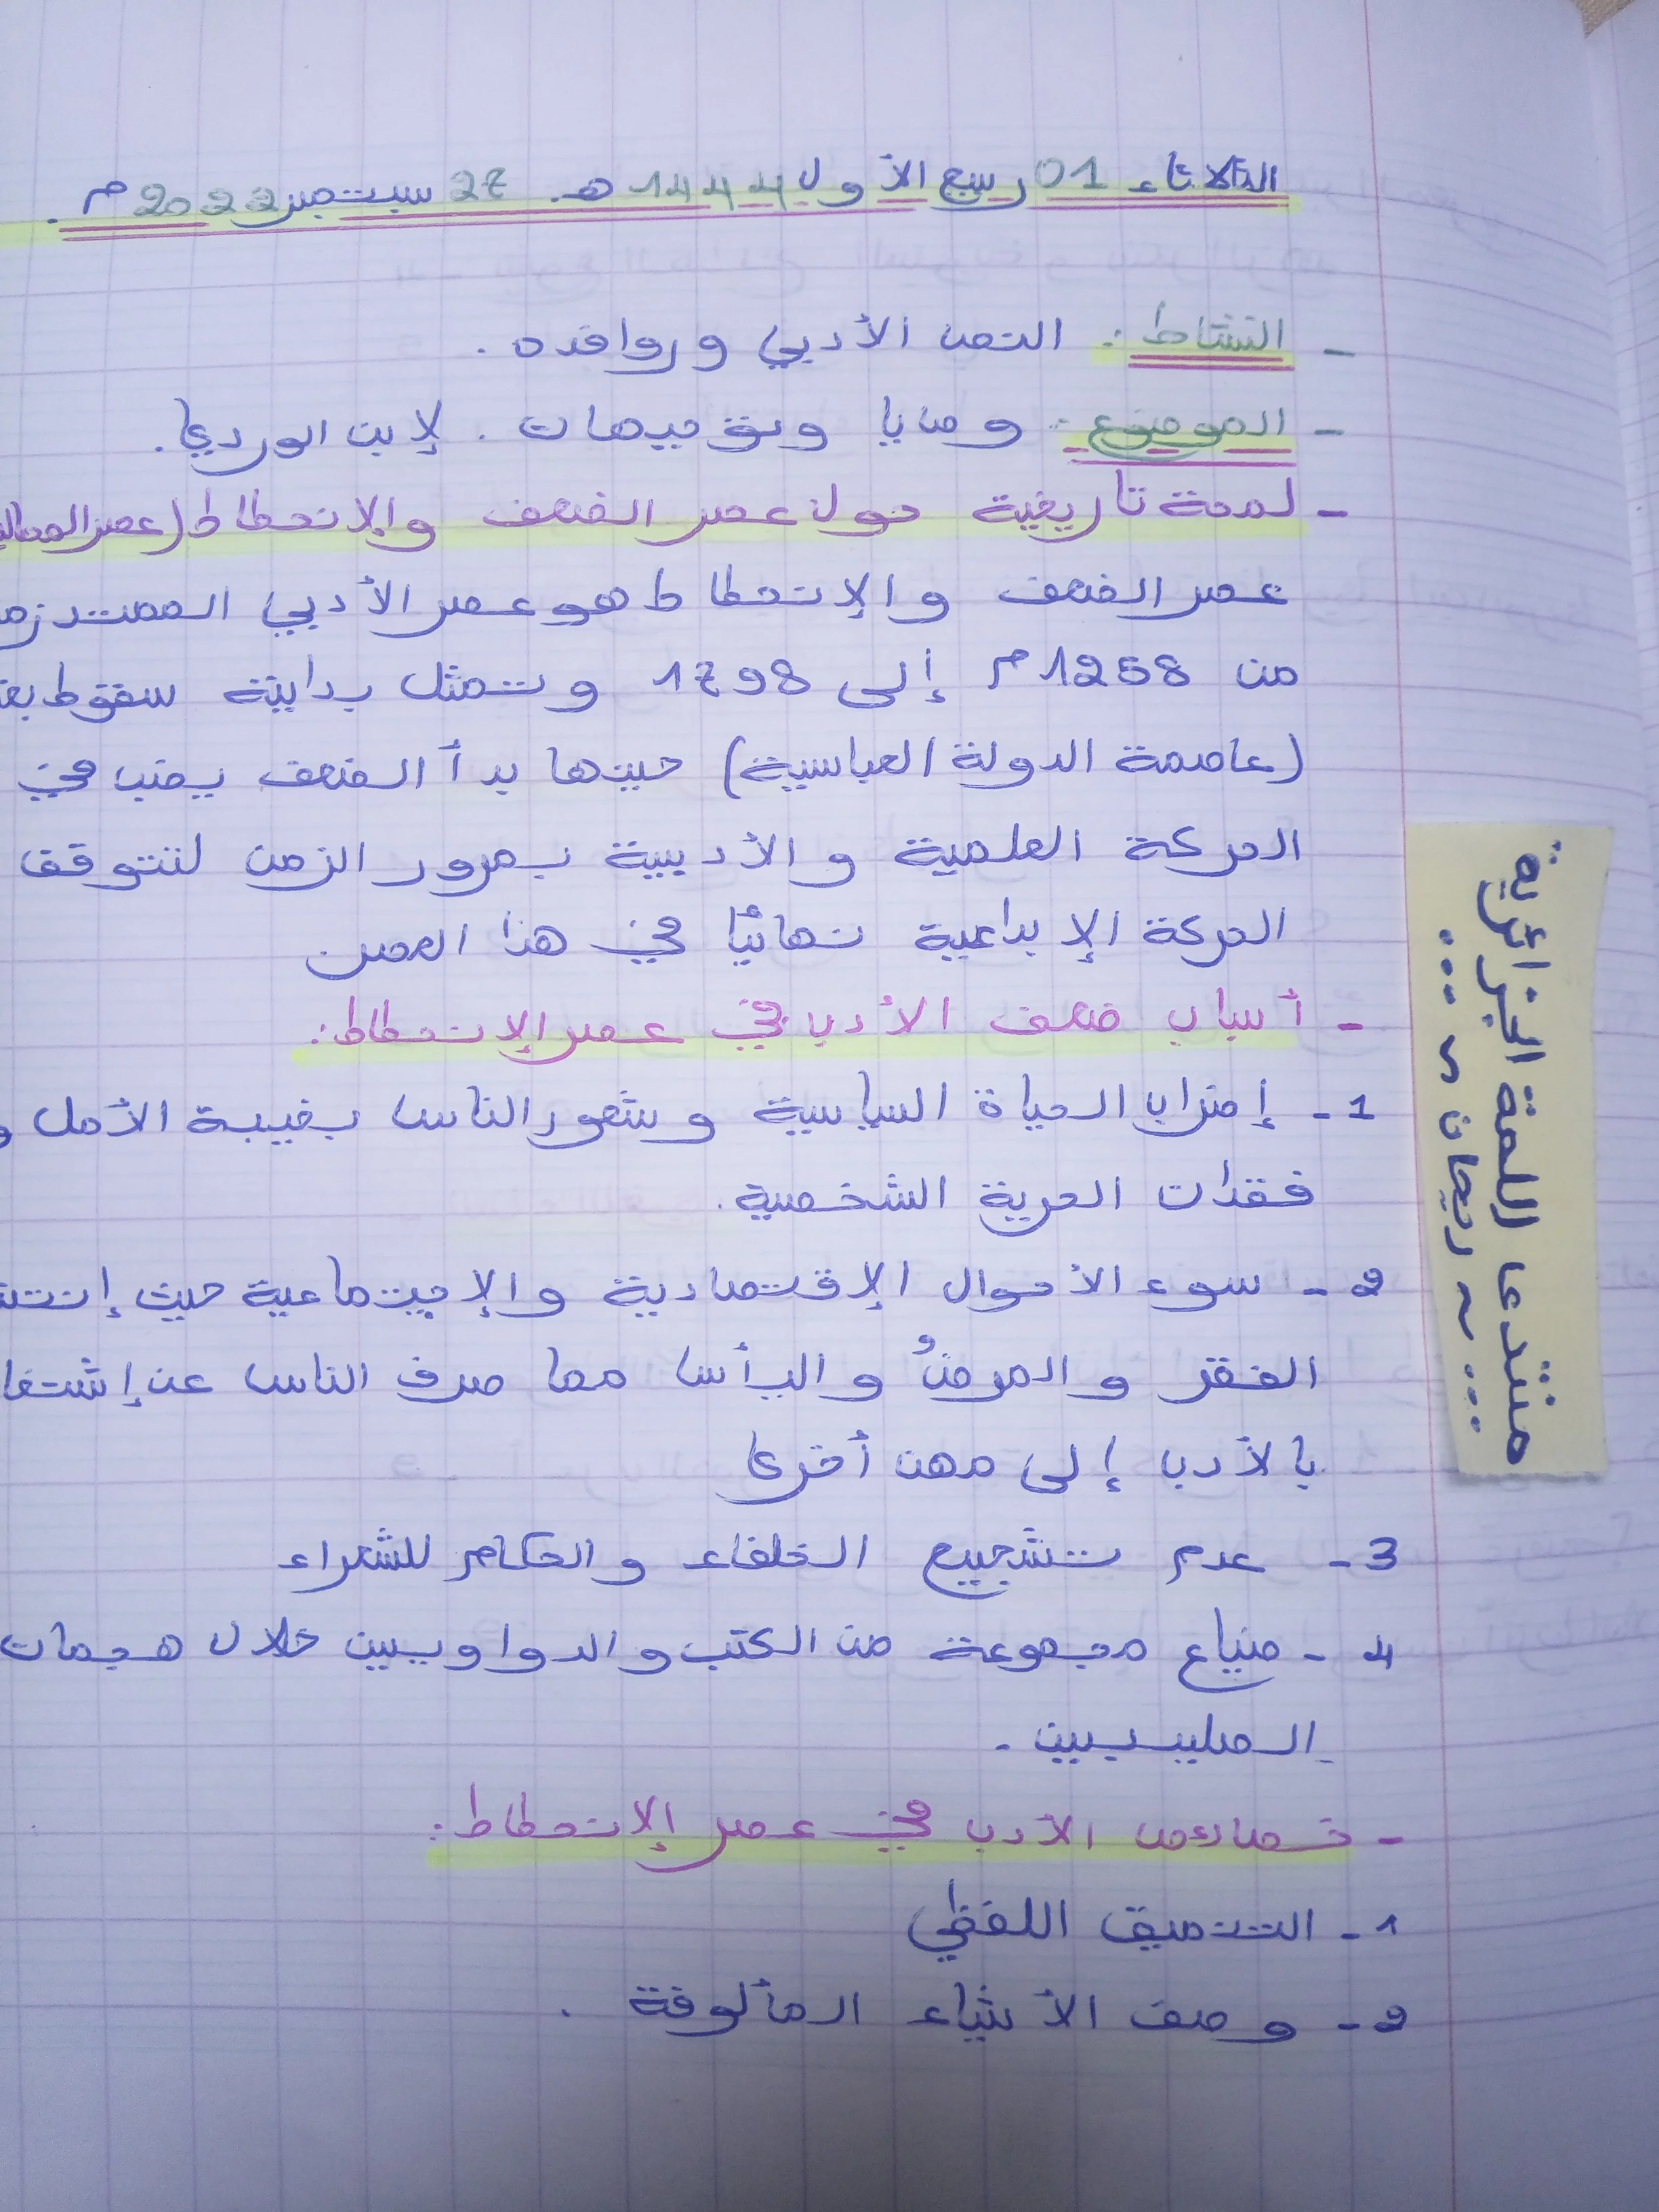 الثلاثاء 01 ربيع الأول 1444 هـ. 27 سبتمبر 2022 م.
- النشاط: النص الأدبي وروافده.
- الموضوع: وصايا وتوجيهات. لإبن الوردي.
- لمحة تاريخية حول عصر الضعف والإنحطاط (عصر
عصر الضعف والإنحطاط هو عصر الأدبي الممتد
من 1258 م إلى 1798 وتمثل بداية سقوط
(عاصمة الدولة العباسية) حينها بدأ الضعف يصب في
الحركة العلمية والأديبية بمرور الزمن لتتوقف
الحركة الإبداعية نهائيًا في هذا العصر
- أسباب ضعف الأدب في عصر الإنحطاط:
1- إضراب الحياة السياسية وشعور الناس بخيبة الأمل و
فقدان الحرية الشخصية.
2- سوء الأحوال الإقتصادية والإجتماعية حيث
الفقر والمرض والبأس مما صرف الناس عن
بالأدب إلى مهن أخرى
3- عدم تشجيع الخلفاء والحكام للشعراء
4- ضياع مجموعة من الكتب والدواويين خلال هجمات
الصليبيين.
- خصائص الأدب في عصر الإنحطاط:
1- التنميق اللفظي
2- وصف الأشياء المألوفة.
منتدى اللمة الجزائرية
... ~ ريحان ~ ...